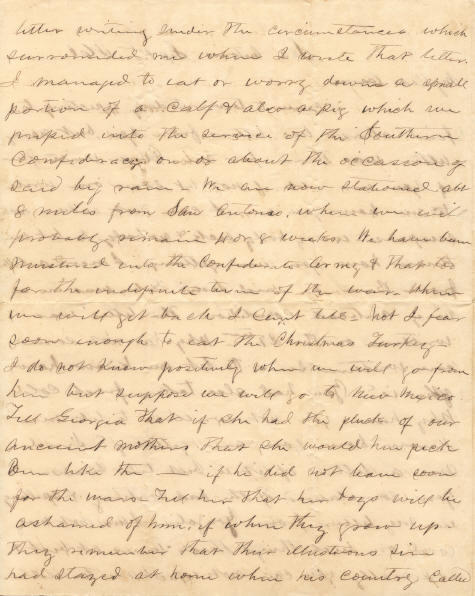 letter writing under the circumstances which
surrounded me when I wrote that letter.
I managed to eat or worry down a small
portion of a calf & also a pig which we
pressed into the service of the Southern
Confederacy on or about the occasion of
said big rain We are now stationed abt
8 miles from San Antonio, where we will
probably remain 4 or 8 weeks. We have been
mustered into the Confederate Army & that too
for the indefinite term of the war. When
we will get back I can't tell - not I fear
soon enough to eat the Christmas Turkey
I do not know positively when we will go from
here but suppose we will go to New Mexico.
Tell Georgia that if she had the pluck of our
ancient mothers that she would kick
Ben like the — if he did not leave soon
for the wars. Tell her that her boys will be
ashamed of him, if when they grow up
they remember that their illustrious sire
had stayed at home when his country called